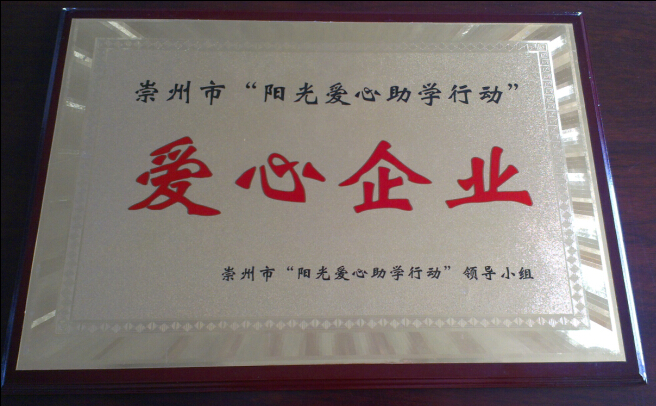 崇州市“阳光爱心助学行动”
爱心企业
崇州市“阳光爱心助学行动”领导小组